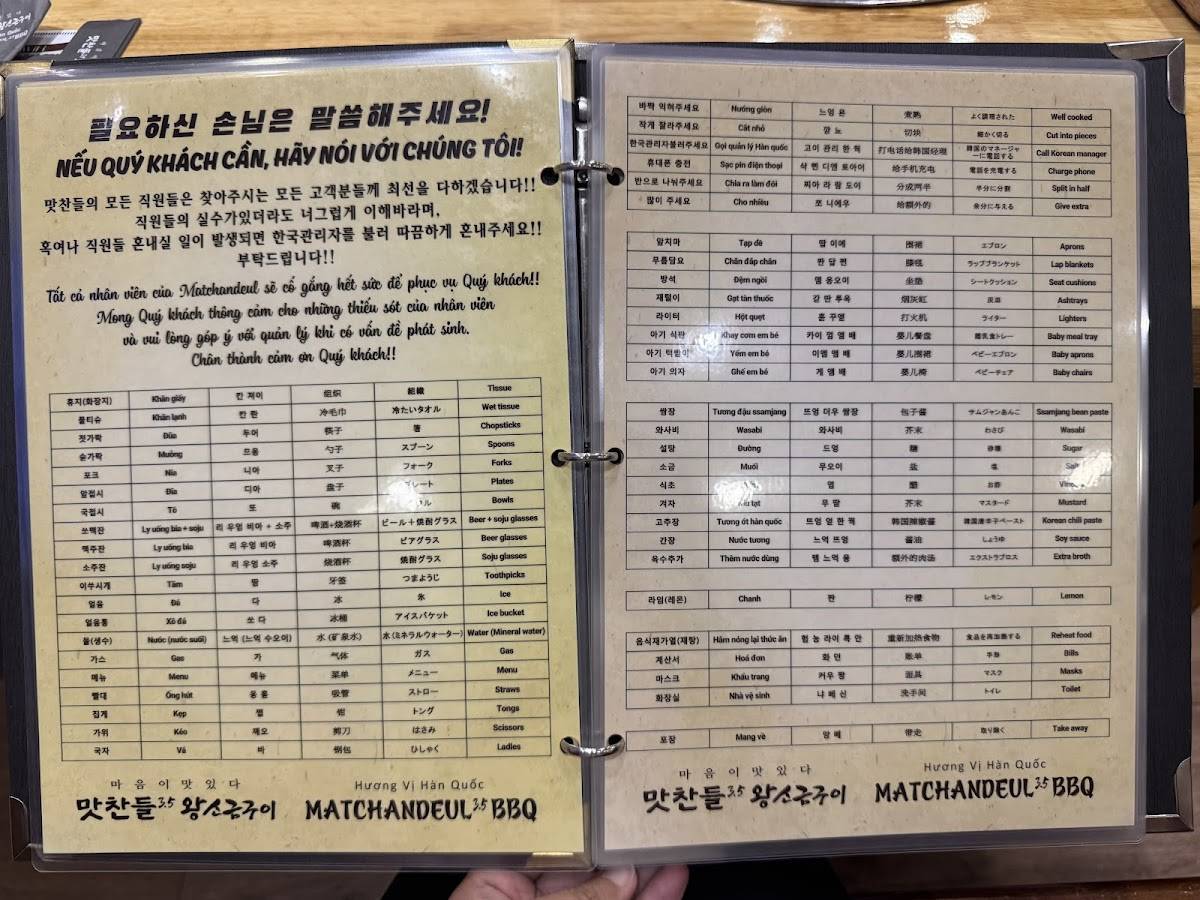 필요하신 손님은 말씀해주세요!
NẾU QUÝ KHÁCH CẦN, HÃY NÓI VỚI CHÚNG TÔI!
맛찬들의 모든 직원들은 찾아주시는 모든 고객분들께 최선을 다하겠습니다!!
직원들의 실수가있더라도 너그럽게 이해바라며,
혹여나 직원들 혼내실 일이 발생되면 한국관리자를 불러 따끔하게 혼내주세요!!
부탁드립니다!!
Tất cả nhân viên của Matchandeul sẽ cố gắng hết sức để phục vụ Quý khách!!
Mong Quý khách thông cảm cho những thiếu sót của nhân viên
và vui lòng góp ý với quản lý khi có vấn đề phát sinh.
Chân thành cảm ơn Quý khách!!
휴지(화장지) Khăn giấy 칸 져이 组织 組織 Tissue
물티슈 Khăn lạnh 칸 란 冷毛巾 冷たいタオル Wet tissue
젓가락 Đũa 두어 筷子 箸 Chopsticks
숟가락 Muỗng 므옹 勺子 スプーン Spoons
포크 Nĩa 니아 叉子 フォーク Forks
앞접시 Đĩa 디아 盘子 Plates
국접시 Tô 또 碗 Bowls
쏘맥잔 Ly uống bia + soju 리 우엉 비아 + 소주 啤酒+烧酒杯 ビール+焼酎グラス Beer + soju glasses
맥주잔 Ly uống bia 리 우엉 비아 啤酒杯 ビアグラス Beer glasses
소주잔 Ly uống soju 리 우엉 소주 烧酒杯 焼酎グラス Soju glasses
이쑤시게 Tăm 땀 牙签 つまようじ Toothpicks
얼음 Đá 다 冰 氷 Ice
얼음통 Xô đá 쏘 다 冰桶 アイスバケット Ice bucket
물(생수) Nước (nước suối) 느억 (느억 수오이) 水 (矿泉水) 水 (ミネラルウォーター) Water (Mineral water)
가스 Gas 가 气体 ガス Gas
메뉴 Menu 메뉴 菜单 メニュー Menu
빨대 Ống hút 옹 훝 吸管 ストロー Straws
집게 Kẹp 껩 钳 トング Tongs
가위 Kéo 께오 剪刀 はさみ Scissors
국자 Vá 바 倒包 ひしゃく Ladles
마음이맛있다
맛찬들3.5 왕소금구이
Hương Vị Hàn Quốc
MATCHANDEUL3.5 BBQ
바짝 익혀주세요 Nướng giòn 느엉 욘 煮熟 よく調理された Well cooked
작게 잘라주세요 Cắt nhỏ 깟 뇨 切块 細かく切る Cut into pieces
한국관리자불러주세요 Gọi quản lý Hàn quốc 고이 관리 한 꿕 打电话给韩国经理 韓国のマネージャーに電話する Call Korean manager
휴대폰 충전 Sạc pin điện thoại 삭 삔 디엔 토아이 给手机充电 電話を充電する Charge phone
반으로 나눠주세요 Chia ra làm đôi 찌아 라 람 도이 分成两半 半分に分割 Split in half
많이 주세요 Cho nhiều 쪼 니에우 给额外的 余分に与える Give extra
앞치마 Tạp dề 땁 이에 围裙 エプロン Aprons
무릎담요 Chăn đắp chân 짠 답 쩐 膝毯 ラップブランケット Lap blankets
방석 Đệm ngồi 뎀 응오이 坐垫 シートクッション Seat cushions
재떨이 Gạt tàn thuốc 갇 딴 투옥 烟灰缸 灰皿 Ashtrays
라이터 Hột quẹt 훋 꾸엗 打火机 ライター Lighters
아기 식판 Khay cơm em bé 카이 껌 엠 배 婴儿餐盘 離乳食トレー Baby meal tray
아기 턱받이 Yếm em bé 이엠 엠 배 婴儿围裙 ベビーエプロン Baby aprons
아기 의자 Ghế em bé 게 엠 배 婴儿椅 ベビーチェア Baby chairs
쌈장 Tương đậu ssamjang 뜨엉 더우 쌈장 包子酱 サムジャンあんこ Ssamjang bean paste
와사비 Wasabi 와사비 芥末 わさび Wasabi
설탕 Đường 드엉 糖 砂糖 Sugar
소금 Muối 무오이 盐 塩 Salt
식초 염 醋 お酢
겨자 무 딷 芥末 マスタード Mustard
고추장 Tương ớt hàn quốc 뜨엉 얻 한 꿕 韩国辣椒酱 韓国唐辛子ペースト Korean chili paste
간장 Nước tương 느억 뜨엉 酱油 しょうゆ Soy sauce
육수추가 Thêm nước dùng 템 느억 용 额外的肉汤 エクストラブロス Extra broth
라임(레몬) Chanh 짠 柠檬 レモン Lemon
음식재가열(재탕) Hâm nóng lại thức ăn 험 농 라이 특 안 重新加热食物 食品を再加熱する Reheat food
계산서 Hoá đơn 화 던 账单 手形 Bills
마스크 Khẩu trang 커우 짱 面具 マスク Masks
화장실 Nhà vệ sinh 냐 베 신 洗手间 トイレ Toilet
포장 Mang về 망 베 带走 取り除く Take away
마음이맛있다
맛찬들3.5 왕소금구이
Hương Vị Hàn Quốc
MATCHANDEUL3.5 BBQ